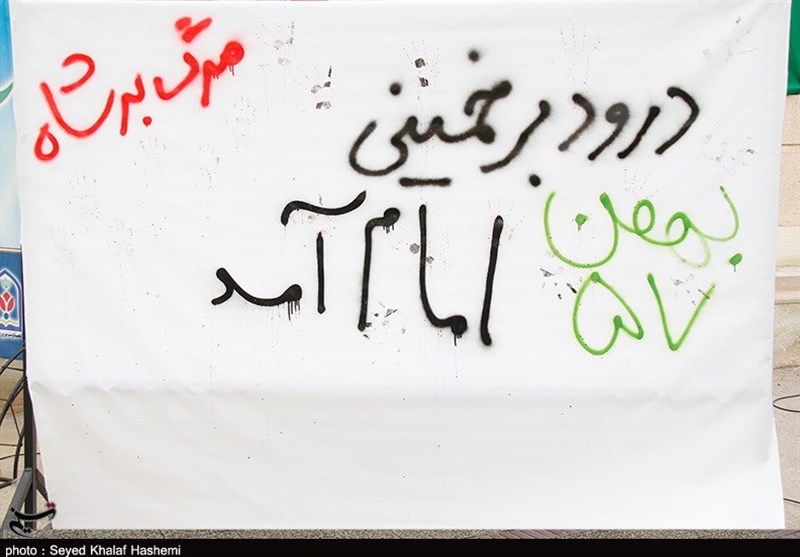 مرگ بر شاه
درود بر خمینی
بهمن
۵۷
امام آمد
photo : Seyed Khalaf Hashemi